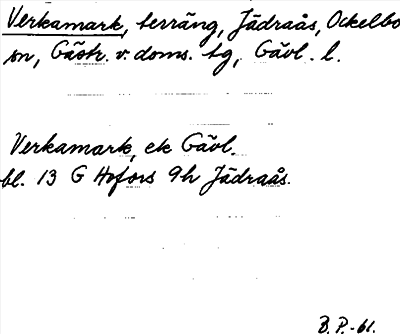 Verkamark, terräng, Jädraås, Ockelbo
sn, Gästr. v. doms. tg, Gävl. l.
Verkamark, ek Gävl.
bl. 13 G Hofors 9h Jädraås.
B. P. -61.